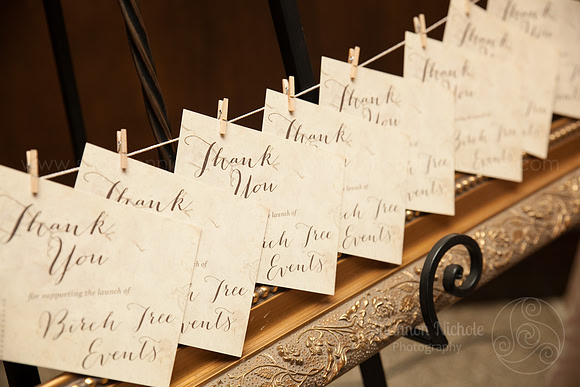 Thank
You
for supporting the launch of
Birch Tree
Events
Thank
launch of
Tree
Events
Thank
You
launch of
Birch Tree
Events
Thank
You
launch of
Birch Tree
Events
Thank
You
Tree
Events
Thank
You
Birch Tree
Events
Thank
You
Tree
Events
Thank
You
Shannon Nichole
Photography